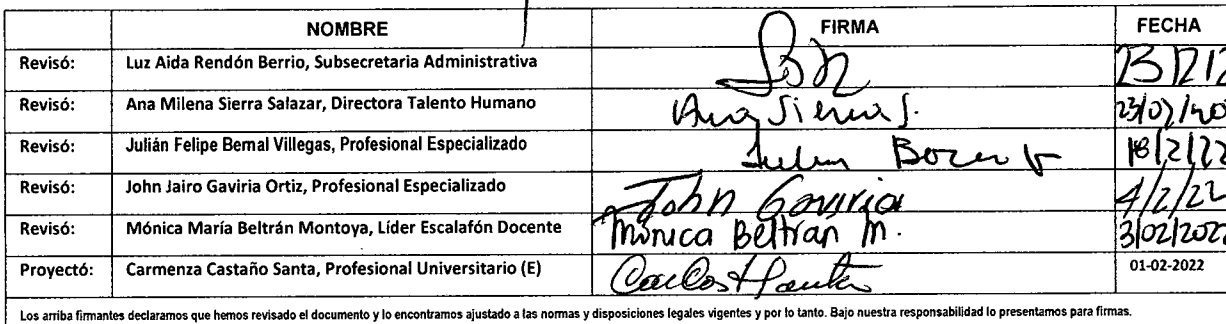 NOMBRE FIRMA FECHA
Revisó: Luz Aida Rendón Berrio, Subsecretaria Administrativa
Revisó: Ana Milena Sierra Salazar, Directora Talento Humano Ana Sierra S.
Revisó: Julián Felipe Bernal Villegas, Profesional Especializado 18/2/22
Revisó: John Jairo Gaviria Ortiz, Profesional Especializado John Gaviria 4/2/22
Revisó: Mónica María Beltrán Montoya, Líder Escalafón Docente Mónica Beltrán M. 3/02/2022
Proyectó: Carmenza Castaño Santa, Profesional Universitario (E) 01-02-2022
Los arriba firmantes declaramos que hemos revisado el documento y lo encontramos ajustado a las normas y disposiciones legales vigentes y por lo tanto. Bajo nuestra responsabilidad lo presentamos para firmas.